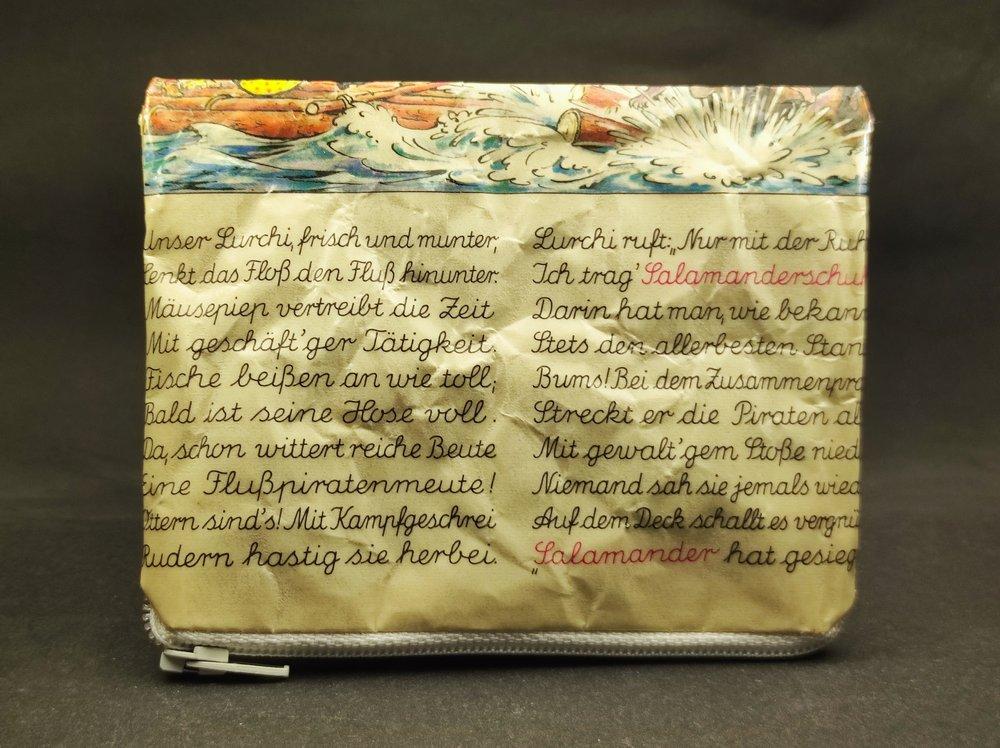 Unser Lurchi, frisch und munter,
Lenkt das Floß den Fluß hinunter.
Mäusepiep vertreibt die Zeit
Mit geschäft'ger Tätigkeit.
Fische beißen an wie toll;
Bald ist seine Hose voll.
Da, schon wittert reiche Beute
Eine Flußpiratenmeute!
Ottern sind's! Mit Kampfgeschrei
Rudern hastig sie herbei.
Lurchi ruft: „Nur mit der Ruh
Ich trag' Salamanderschu
Darin hat man, wie bekan
Stets den allerbesten Stan
Bums! Bei dem Zusammenpra
Streckt er die Piraten al
Mit gewalt'gem Stoße nied
Niemand sah sie jemals wied
Auf dem Deck schallt es vergnü
„Salamander hat gesieg